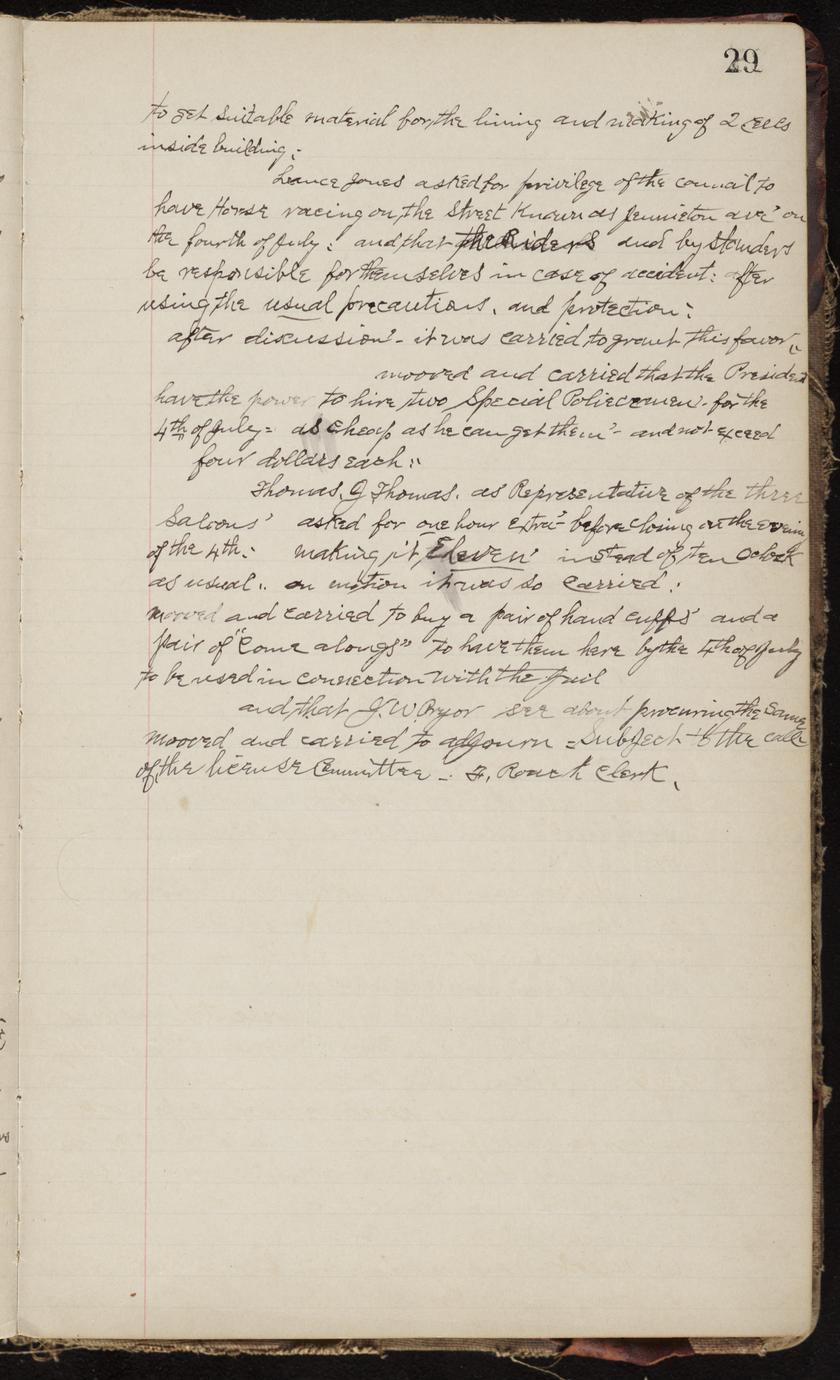 29
to get suitable material for the lining and making of 2 cells
inside building.
Leance Jones asked for privilege of the council to
have Horse racing on the Street Known as Jennieton ave' on
the fourth of July: and that the Riders and by standers
be responsible for themselves in case of accident: after
using the usual precautions, and protection:
after discussion - it was carried to grant this favor:
mooved and carried that the President
have the power to hire two Special Policemen - for the
4th of July = as cheap as he can get them - and not exceed
four dollars each:
Thomas. J Thomas. as Representative of the three
Saloons' asked for one hour extra - before closing on the evening
of the 4th: making it Eleven' instead of ten Oclock
as usual. on motion it was so carried.
mooved and carried to buy a pair of hand cuffs' and a
pair of "come alongs" to have them here by the 4th of July
to be used in connection with the Jail
and that J. W Pryor see about procuring the same
mooved and carried to adjourn = Subject to the call
of the license Committee - F. Roach Clerk.